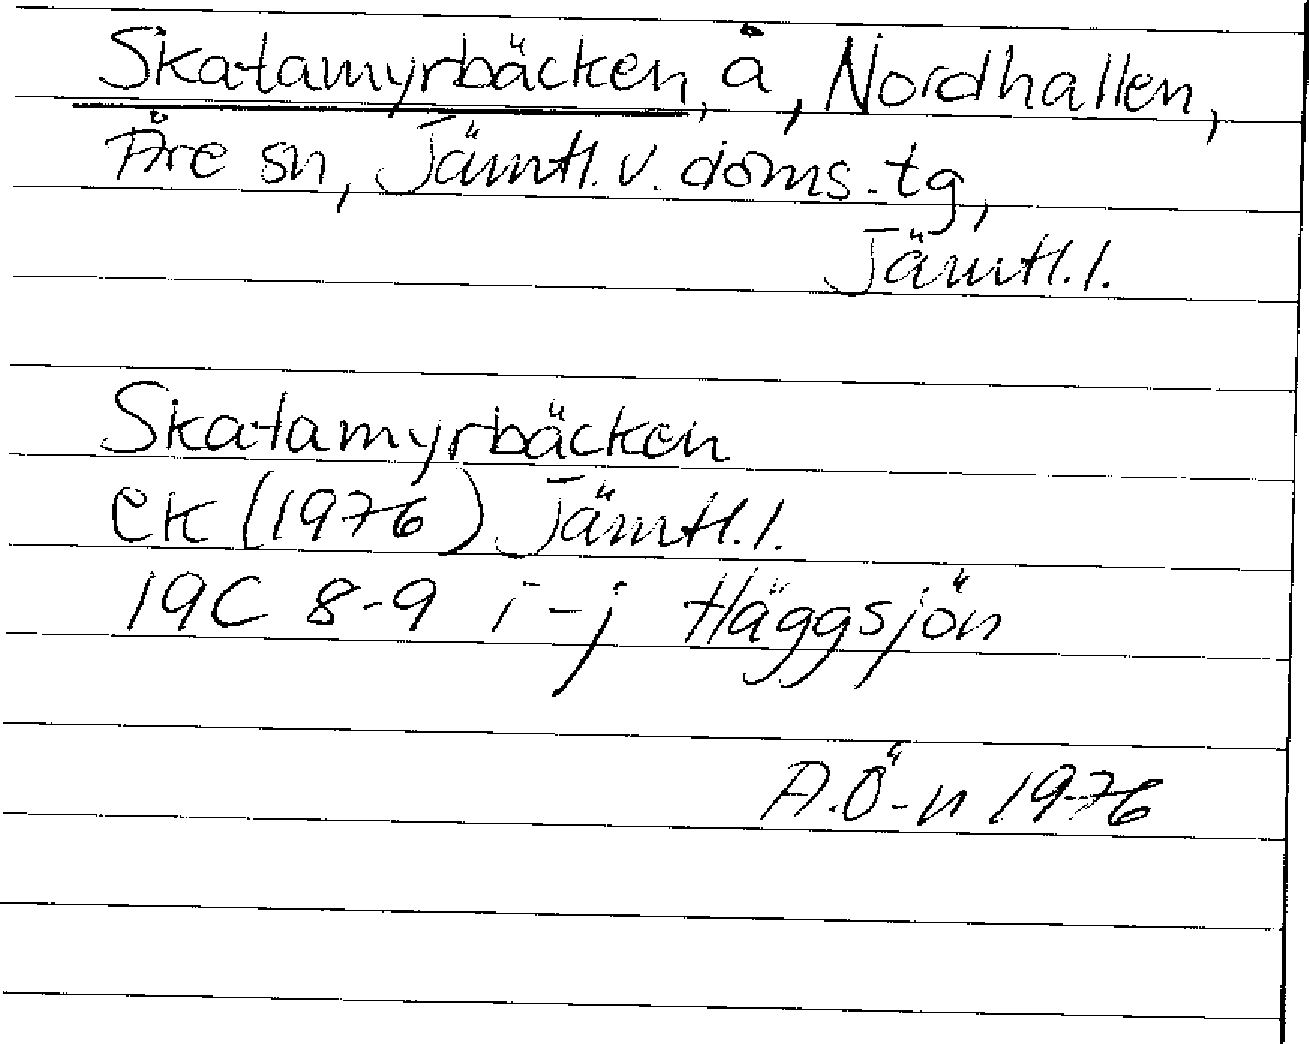 Skatamyrbäcken, å, Nordhallen,
Åre sn, Jämtl. v. doms. tg,
Jämtl. l.
Skatamyrbäcken
ek (1976) Jämtl. l.
19C 8-9 i-j Häggsjön
A.Ö-n 1976